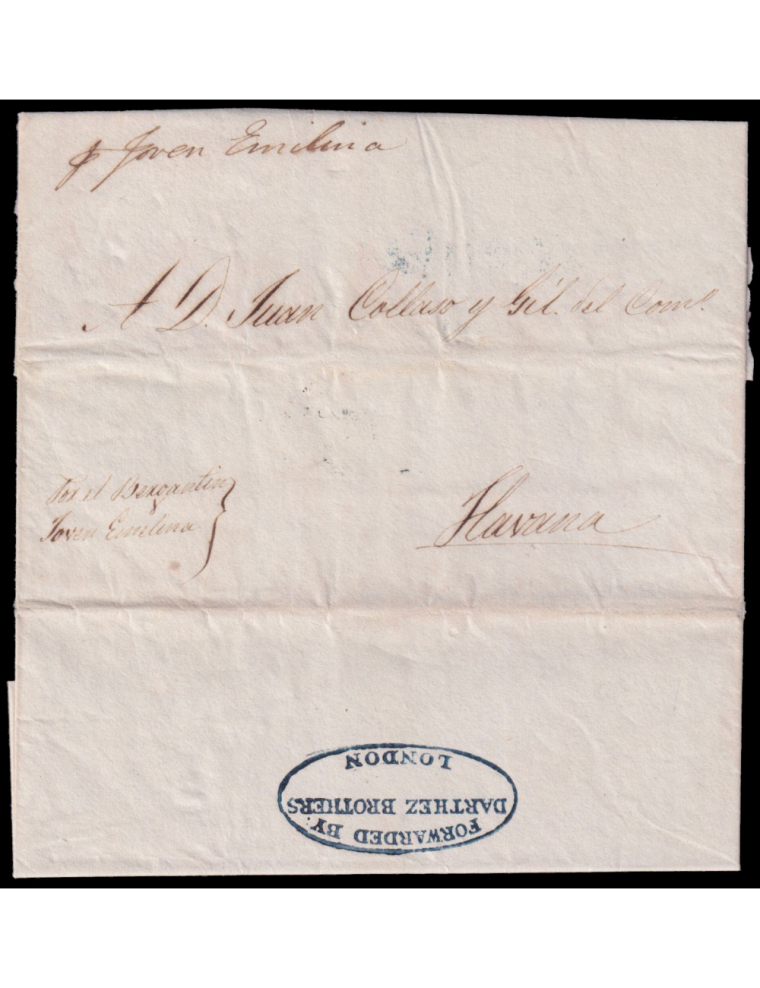 p Joven Emilina
A D. Juan Collaso y Gil. del Com.o
Por el Bergantin
Joven Emilina
Havana
FORWARDED BY:
DARTHEZ BROTHERS
LONDON